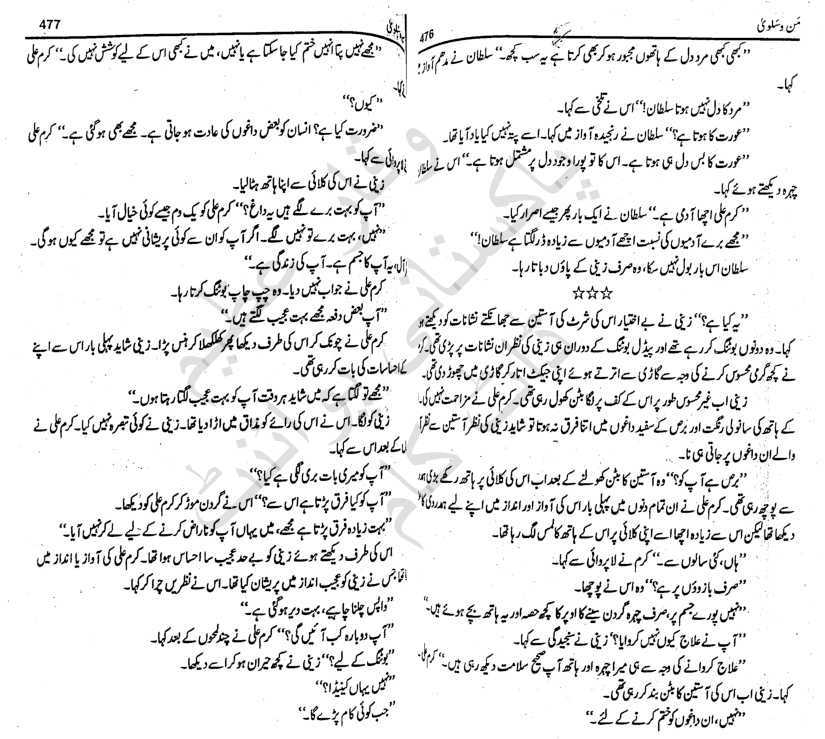 مَن وسلویٰ
476
”کبھی کبھی مرد دل کے ہاتھوں مجبور ہو کر بھی کرتا ہے یہ سب کچھ۔“ سلطان نے مدھم آواز
کہا۔
”مرد کا دل نہیں ہوتا سلطان!“ اس نے تلخی سے کہا۔
”عورت کا ہوتا ہے؟“ سلطان نے رنجیدہ آواز میں کہا۔ اسے پتہ نہیں کیا یاد آیا تھا۔
”عورت کا بس دل ہی ہوتا ہے۔ اس کا تو پورا وجود دل پر مشتمل ہوتا ہے۔“ اس نے سلطان
چہرہ دیکھتے ہوئے کہا۔
”کرم علی اچھا آدمی ہے۔“ سلطان نے ایک بار پھر جیسے اصرار کیا۔
”مجھے برے آدمیوں کی نسبت اچھے آدمیوں سے زیادہ ڈر لگتا ہے سلطان!“
سلطان اس بار بول نہیں سکا، وہ صرف زینی کے پاؤں دباتا رہا۔
☆☆☆
”یہ کیا ہے؟“ زینی نے بے اختیار اس کی شرٹ کی آستین سے جھانکتے نشانات کو دیکھتے ہو
کہا۔ وہ دونوں بوٹنگ کر رہے تھے اور پیڈل بوٹنگ کے دوران ہی زینی کی نظر ان نشانات پر پڑی تھی۔
نے کچھ گرمی محسوس کرنے کی وجہ سے گاڑی سے اترتے ہوئے اپنی جیکٹ اتار کر گاڑی میں چھوڑ دی تھی۔
زینی اب غیر محسوس طور پر اس کے کف پر لگا بٹن کھول رہی تھی۔ کرم علی نے مزاحمت نہیں کی
کے ہاتھ کی سانولی رنگت اور برص کے سفید داغوں میں اتنا فرق نہ ہوتا تو شاید زینی کی نظر آستین سے نظر آ
والے ان داغوں پر جاتی ہی نا۔
”برص ہے آپ کو؟“ وہ آستین کا بٹن کھولنے کے بعد اب اس کی کلائی پر ہاتھ رکھے بڑی ہمد
سے پوچھ رہی تھی۔ کرم علی نے ان تمام دنوں میں پہلی بار اس کی آواز اور انداز میں اپنے لیے ہمدردی کا
دیکھا تھا لیکن اس سے زیادہ اچھا اسے اپنی کلائی پر اس کے ہاتھ کا لمس لگ رہا تھا۔
”ہاں، کئی سالوں سے۔“ کرم نے لا پروائی سے کہا۔
”صرف بازوؤں پر ہے؟“ وہ اس نے پوچھا۔
”نہیں پورے جسم پر، صرف چہرہ گردن سینے کا اوپر کا کچھ حصہ اور یہ ہاتھ بچے ہوئے ہیں۔“
”آپ نے علاج کیوں نہیں کروایا؟“ زینی نے سنجیدگی سے کہا۔
”علاج کروانے کی وجہ سے ہی میرا چہرہ اور ہاتھ آپ صحیح سلامت دیکھ رہی ہیں۔“ کرم علی
کہا۔ زینی اب اس کی آستین کا بٹن بند کر رہی تھی۔
”نہیں، ان داغوں کو ختم کرنے کے لئے۔“
477
”مجھے نہیں پتا انہیں ختم کیا جا سکتا ہے یا نہیں، میں نے کبھی اس کے لیے کوشش نہیں کی۔“ کرم علی
کہا۔
”کیوں؟“
”ضرورت کیا ہے؟ انسان کو بعض داغوں کی عادت ہو جاتی ہے۔ مجھے بھی ہو گئی ہے۔“ کرم علی
لا پروائی سے کہا۔
زینی نے اس کی کلائی سے اپنا ہاتھ ہٹا لیا۔
”آپ کو بہت برے لگے ہیں یہ داغ؟“ کرم علی کو یک دم جیسے کوئی خیال آیا۔
”نہیں، بہت برے تو نہیں لگے۔ اگر آپ کو ان سے کوئی پریشانی نہیں ہے تو مجھے کیوں ہو گی۔
یہ آپ کا جسم ہے۔ آپ کی زندگی ہے۔“
کرم علی نے جواب نہیں دیا۔ وہ چپ چاپ بوٹنگ کرتا رہا۔
”آپ بعض دفعہ مجھے بہت عجیب لگتے ہیں۔“
کرم علی نے چونک کر اس کی طرف دیکھا پھر کھلکھلا کر ہنس پڑا۔ زینی شاید پہلی بار اس سے اپنے
احساسات کی بات کر رہی تھی۔
”مجھے تو لگتا ہے کہ میں شاید ہر وقت آپ کو بہت عجیب لگتا رہتا ہوں۔“
زینی کو لگا۔ اس نے اس کی رائے کو مذاق میں اڑا دیا تھا۔ زینی نے کوئی تبصرہ نہیں کیا۔ کرم علی نے
کے بعد اس سے کہا۔
”آپ کو میری بات بری لگی ہے کیا؟“
”آپ کو کیا فرق پڑتا ہے اس سے؟“ اس نے گردن موڑ کر کرم علی کو دیکھا۔
”بہت زیادہ فرق پڑتا ہے مجھے، میں یہاں آپ کو ناراض کرنے کے لیے لے کر نہیں آیا۔“
اس کی طرف دیکھتے ہوئے زینی کو بے حد عجیب سا احساس ہوا تھا۔ کرم علی کی آواز یا انداز میں
تھا جس نے زینی کو عجیب انداز میں پریشان کیا تھا۔ اس نے نظریں چرا کر کہا۔
”واپس چلنا چاہیے، بہت دیر ہو گئی ہے۔“
”آپ دوبارہ کب آئیں گی؟“ کرم علی نے چند لمحوں کے بعد کہا۔
”بوٹنگ کے لیے؟“ زینی نے کچھ حیران ہو کر اسے دیکھا۔
”نہیں یہاں کینیڈا؟“
”جب کوئی کام پڑے گا۔“